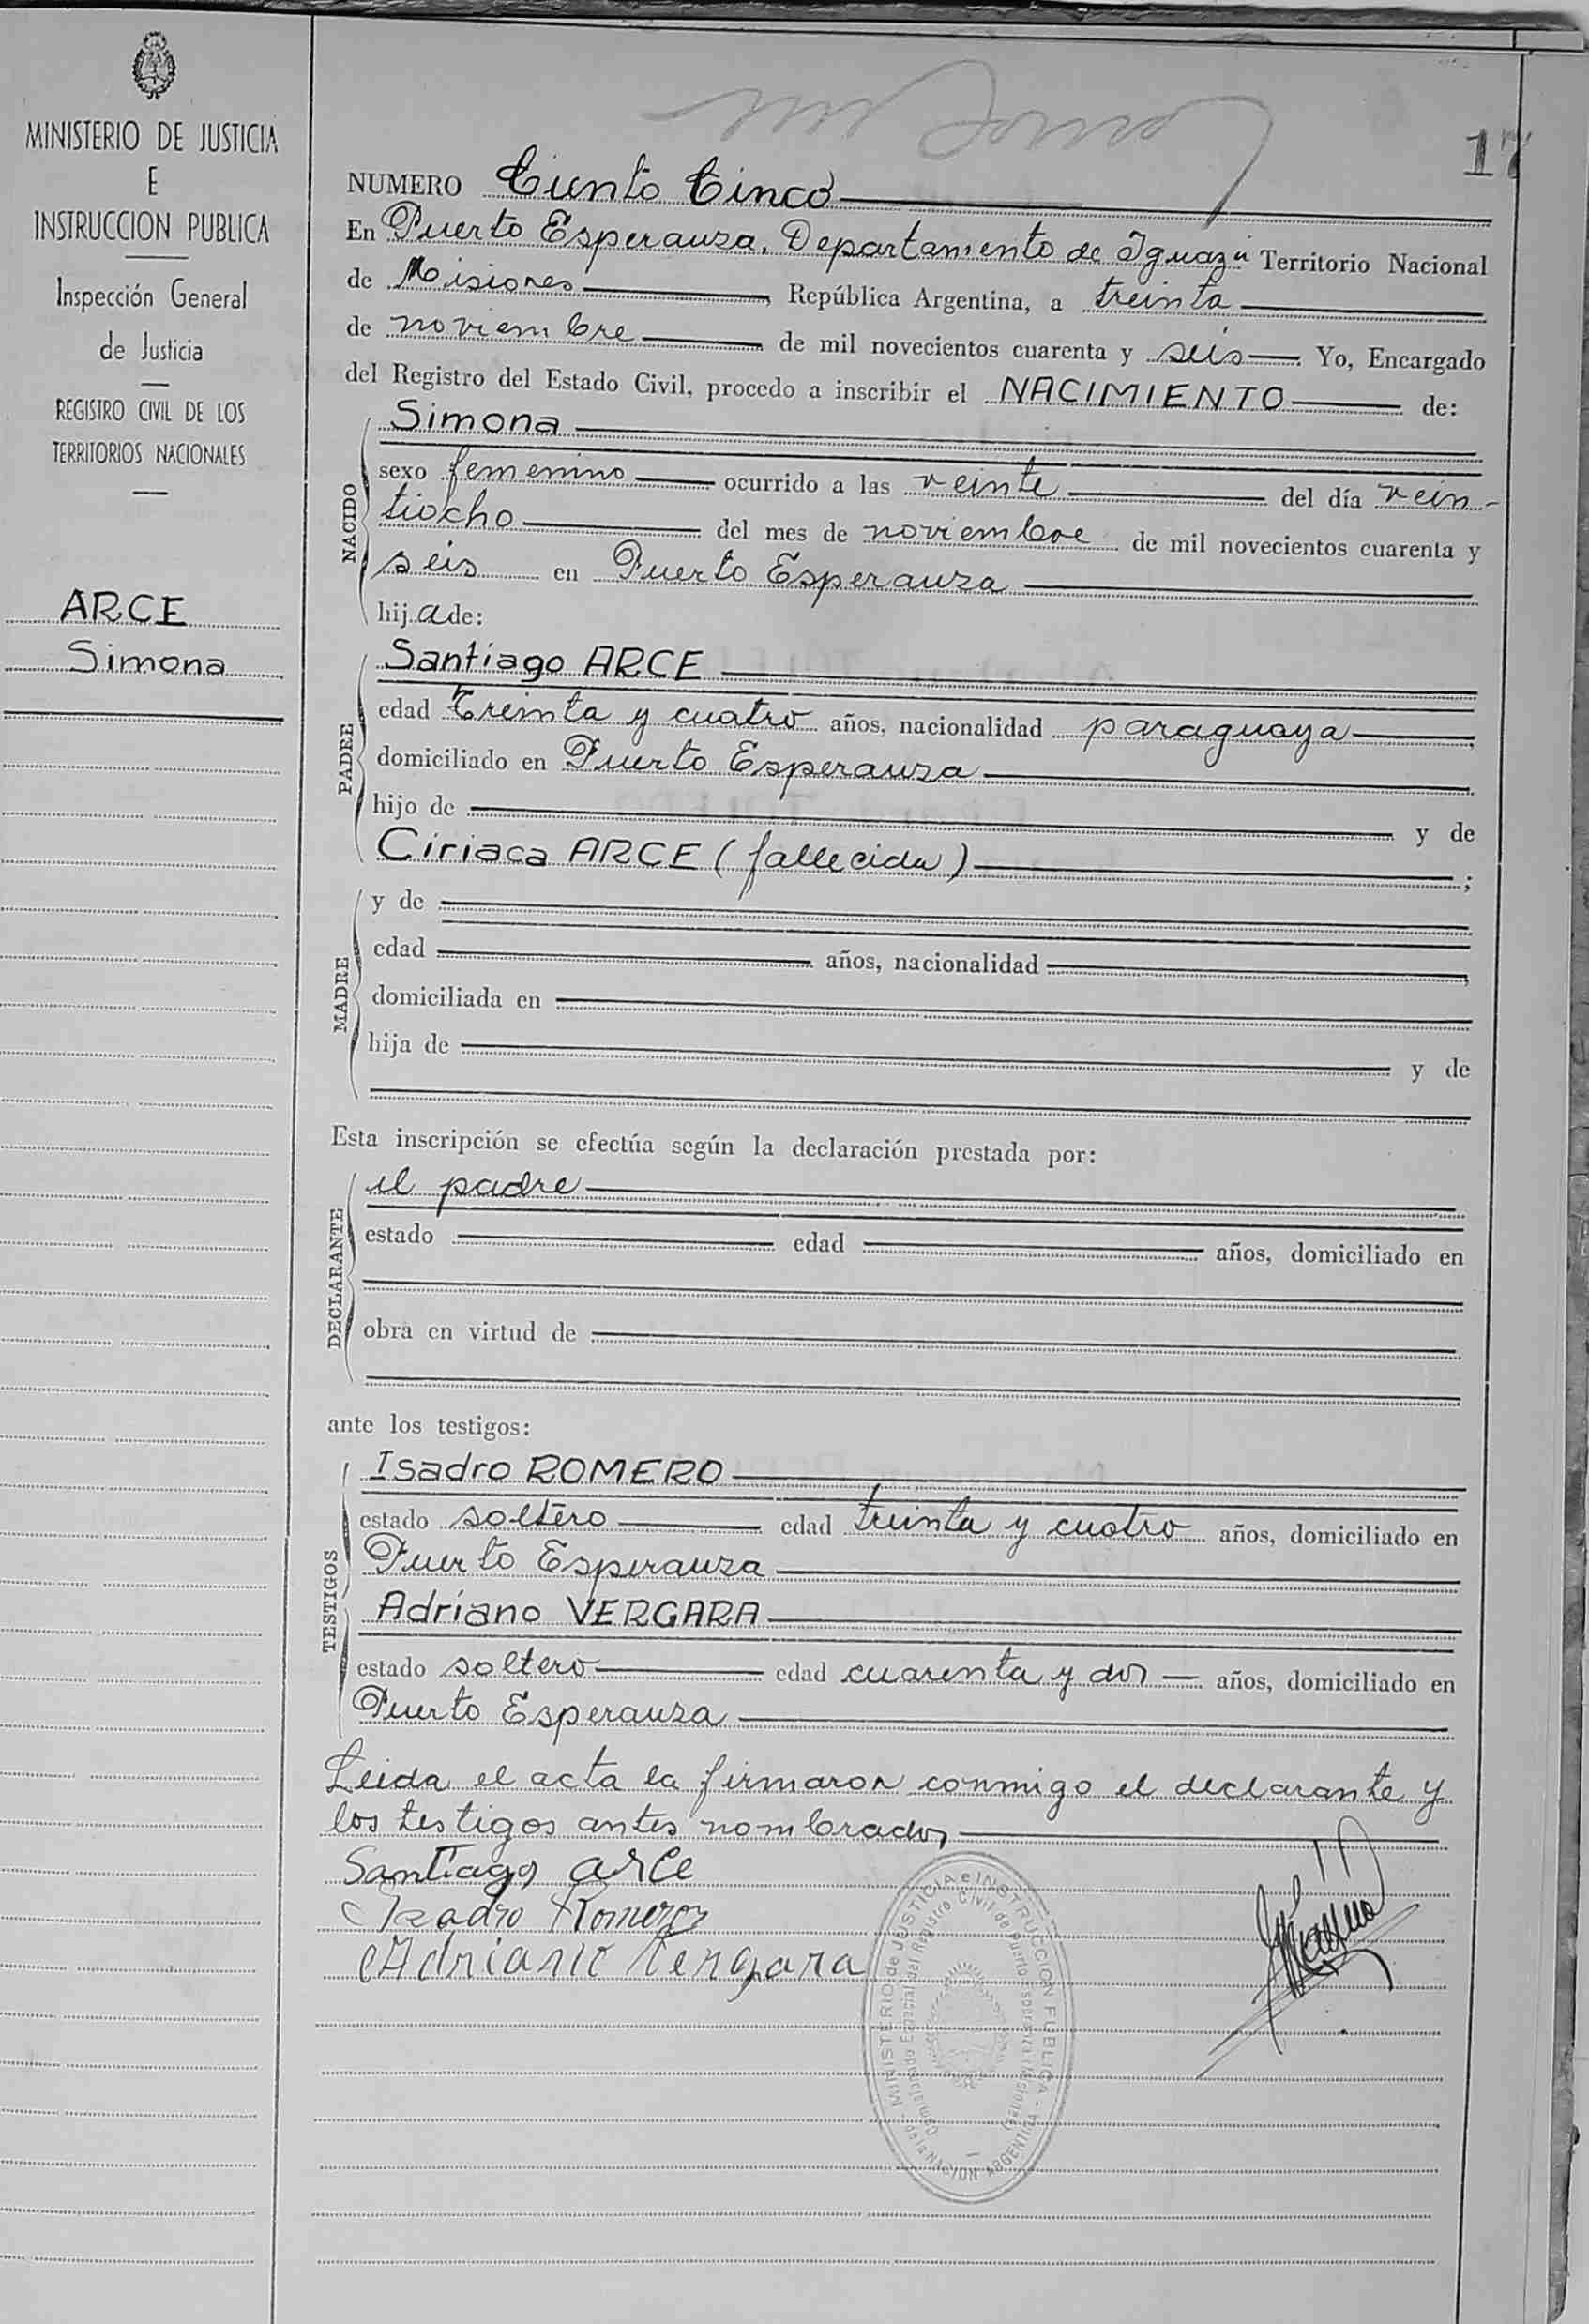 MINISTERIO DE JUSTICIA
E
INSTRUCCION PUBLICA
Inspección General
de Justicia
REGISTRO CIVIL DE LOS
TERRITORIOS NACIONALES
ARCE
Simona
17
NUMERO Ciento Cinco
En Puerto Esperanza, Departamento de Iguazú Territorio Nacional
de Misiones, República Argentina, a treinta
de noviembre de mil novecientos cuarenta y seis. Yo, Encargado
del Registro del Estado Civil, procedo a inscribir el NACIMIENTO de:
NACIDO
Simona
sexo femenino ocurrido a las veinte del día vein-
tiocho del mes de noviembre de mil novecientos cuarenta y
seis en Puerto Esperanza
hija de:
PADRE
Santiago ARCE
edad treinta y cuatro años, nacionalidad paraguaya
domiciliado en Puerto Esperanza
hijo de y de
Ciriaca ARCE (fallecida);
MADRE
y de
edad años, nacionalidad
domiciliada en
hija de y de
Esta inscripción se efectúa según la declaración prestada por:
DECLARANTE
el padre
estado edad años, domiciliado en
obra en virtud de
ante los testigos:
TESTIGOS
Isadro ROMERO
estado soltero edad treinta y cuatro años, domiciliado en
Puerto Esperanza
Adriano VERGARA
estado soltero edad cuarenta y dos años, domiciliado en
Puerto Esperanza
Leida el acta la firmaron conmigo el declarante y
los testigos antes nombrados
Santiago Arce
Isadro Romero
Adriano Vergara
MINISTERIO de JUSTICIA e INSTRUCCION PUBLICA
de la NACION ARGENTINA